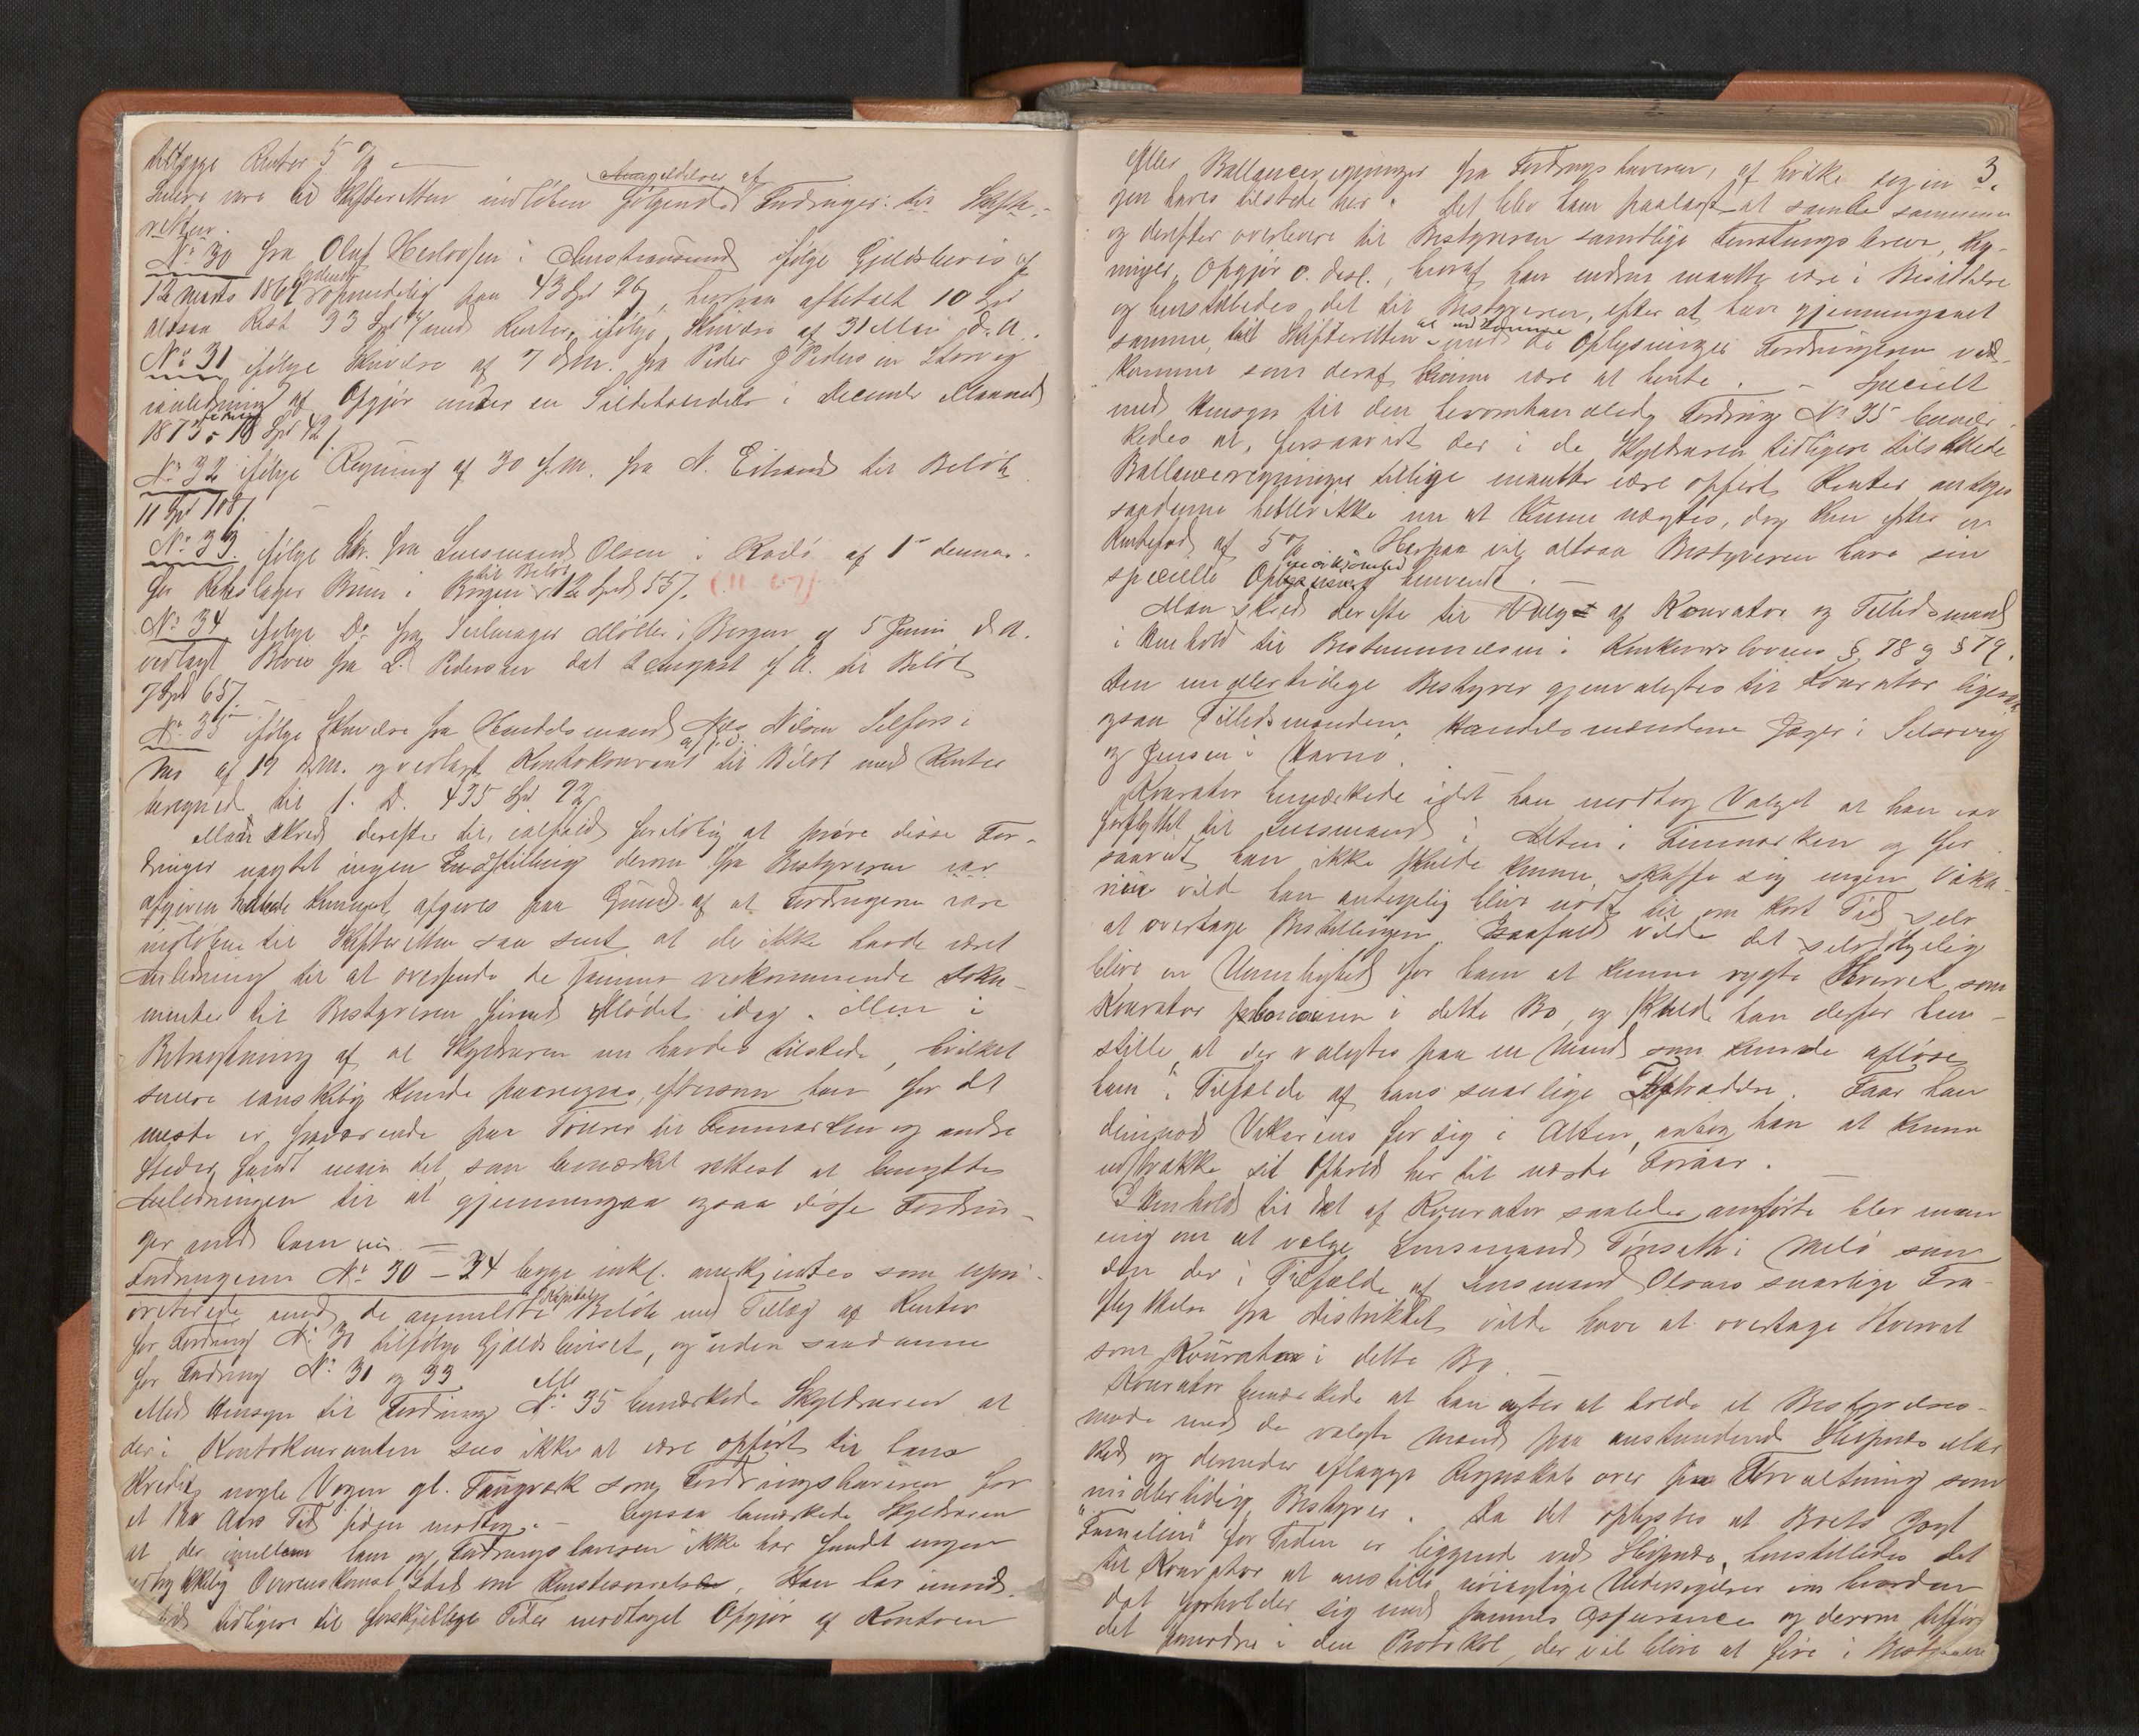 tillægge Renter 5 %. —
Anmeldelser af
Senere vare til Skifteretten indløbne følgende Fordringer: til Skifte-
retten.
No 30 fra Olaf Herlofsen i Christianssund ifølge Gjeldsbevis af
12 Marts 1869 lydende paa 43 Spd 96 β, herpaa afbetalt 10 Spd
altsaa Rest 33 Spd med Renter, ifølge Skrivelse af 31 Mai d. A.
No 31 ifølge Skrivelse af 7 d. M. fra Peder J Pedersen Storvog
i anledning af Opgjør under en Sildehandel i December Maaned
1873 18 Spd 42 β.
No 32 ifølge Regning af 30 f. M. fra A. Eitrand til Beløb
11 Spd 108 β.
No 33. ifølge Skr. fra Lensmand Olsen i Rødø af 1ste dennes
for Rebslager Bruun i Bergen til Beløb 12 Spd 55 β.
No 34 ifølge Do fra Seilmager Møller i Bergen af 5 Juni d. A.
vedlagt Bevis fra L. Pedersen dat 2 August f. A. til Beløb
7 Spd 65 β. —
No 35 ifølge Skrivelse fra Handelsmand Nils Nilsen Selfors i
Mo af 19 d. M. og vedlagt Kontokurant til Beløb med Renter
beregnet til 1. D. 435 Spd 22 β
Man skred derefter til, ialfald foreløbig at prøve disse For-
dringer uagtet ingen Indstilling derom fra Bestyreren var
afgiven heller kunnet afgives paa Grund af at Fordringerne vare
indløbne til Skifteretten saa sent at der ikke havde været
Anledning til at oversende de samme vedkommende Doku-
menter til Bestyreren førend Mødet idag. Men i
Betragtning af at Skyldneren nu havdes tilstede, hvilket
senere vanskelig kunde paaregnes, eftersom han for det
meste er fraværende paa Tourer til Finmarken og andre
Steder, fandt man det som bemærket rettest at benytte
Anledningen til at gjennemgaa ogsaa disse Fordrin-
ger med ham nu. —
Fordringerne No 30 – 34 begge inkl. anerkjendtes som upri-
oriterede med de anmeldte Kapital Beløb med Tillæg af Renter
for Fordring No 30 tilfølge Gjældsbeviset, og uden saadanne
for Fordring No 31 og 33
Med Hensyn til Fordring No 35 bemærkede Skyldneren at
der i Kontokuranten sees ikke at være opført til hans
Kredit nogle Voger gl. Taugværk som Fordringshaveren for
et Par Aars Tid siden modtog. — Ligesaa bemærkede Skyldneren
at der imellem ham og Fordringshaveren ikke har fundt nogen
udtrykkelig Overenskomst Sted om Rentesvarelse. Han har imid-
lertid tidligere til forskjellige Tider modtaget Opgjør af Kontoen
3.
eller Ballanceregninger fra Fordringshaveren, af hvilke dog in-
gen haves tilstede her. Det blev ham paalagt at samle sammen
og derefter overlevere til Bestyreren samtlige Fordringsbreve, Reg-
ninger, Opgjør o. desl., hvoraf han endnu maatte være i Besiddelse
og henstilledes det til Bestyreren, efter at have gjennemgaaet
samme, til Skifteretten at indkomme med de Oplysninger Fordringerne ved-
kommer som deraf kunne være at hente. — Specielt
med Hensyn til den heromhandlede Fordring No 35 bemær-
kedes at, forsaavidt der i de Skyldneren tidligere tilstillede
Ballanceregninger tillige maatte være opført Renter antoges
saadanne heller ikke nu at kunne nægtes, dog kun efter en
Rentefod af 5 %. Herpaa vil altsaa Bestyreren have sin
specielle Opmærksomhed henvendt. —
Man skred derefter til Valg af Kurator og Tillidsmænd
i Henhold til Bestemmelsen i Konkurslovens § 78 og § 79.
Den midlertidige Bestyrer gjenvalgtes til Kurator ligesaa
ogsaa Tillidsmændene, Handelsmændene Jæger i Selsovig
og Jensen i Havnø.
Kurator bemærkede idet han modtog Valget at han var
forflyttet til Lensmand i Alten i Finmarken og for-
saavidt han ikke skulde kunne skaffe sig nogen Vika-
rius vilde han antagelig blive nødt til om kort Tid selv
at overtage Bestillingen. Isaafald vilde det selvfølgelig
blive en Umulighed for ham at kunne røgte Hvervet som
Kurator i dette Bo, og skulde han derfor hen-
stille at der valgtes paa en Mand som kunde afløse
ham i Tilfælde af hans snarlige Fratræden. Faar han
derimod Vikarius for sig i Alten, antog han at kunne
udstrække sit Ophold her til næste Foraar. —
I Henhold til det af Kurator saaledes anførte blev man
enig om at vælge Lensmand Tønseth i Melø som
den der i Tilfælde af Lensmand Olsens snarlige Fra-
flyttelse fra Distriktet vilde have at overtage Hvervet
som Kurator i dette Bo. —
Kurator bemærkede at han agter at holde et Bestyrelses-
møde med de valgte Mænd paa anstundende Mar-
ked og derunder aflægge Regnskab over sin Forvaltning som
midlertidig Bestyrer. Da det oplystes at Boets Jagt
"Familien" for Tiden er liggende ved henstilledes det
til Kurator at anstille nøiagtige Undersøgelser om hvordan
det forholder sig med sammes Assurance og derom tilføre
det fornødne i den Protokol, der vil blive at føre i Bestyrelse